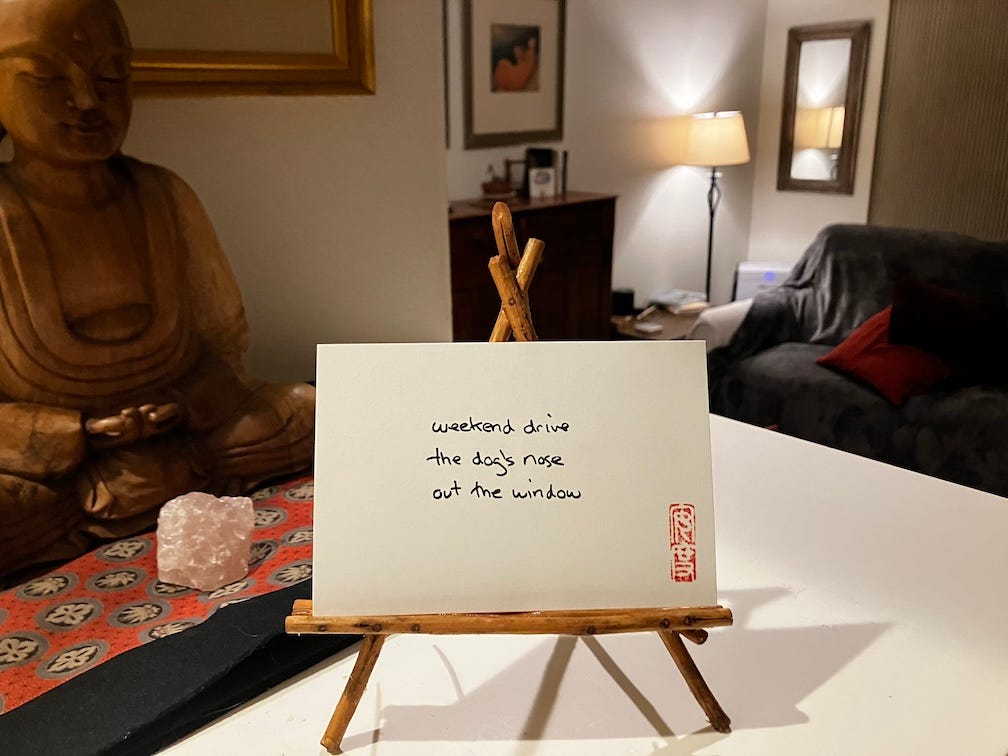 weekend drive
the dog's nose
out the window